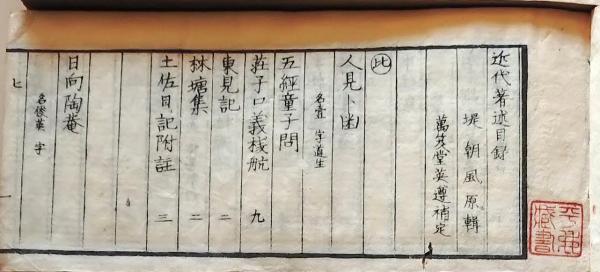 近代著述目録
堤朝風原輯
萬笈堂英遵補定
比
人見卜幽
名壹 字道生
五經童子問
莊子口義棧航 九
東見記 二
林塘集 二
土佐日記附註 三
日向陶菴
名俊英 字
ヒ
藏書